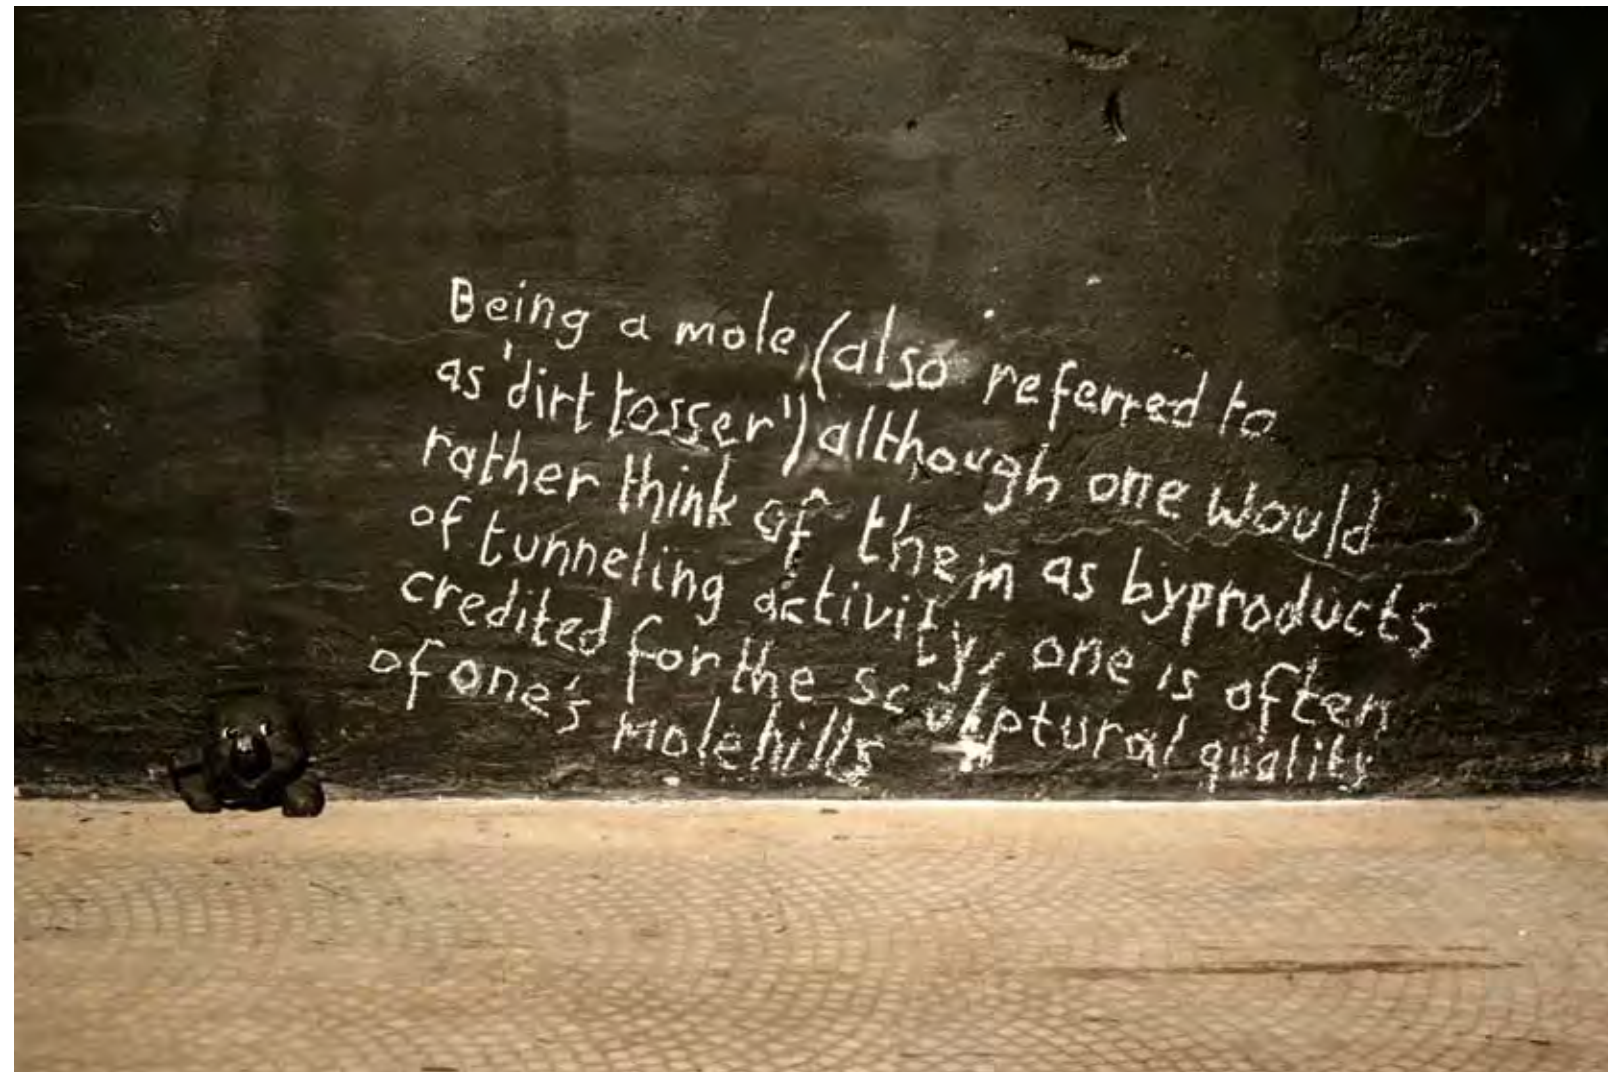 Being a mole, (also referred to
as 'dirt tosser') although one would
rather think of them as byproducts
of tunneling activity, one is often
credited for the sculptural quality
of one's molehills